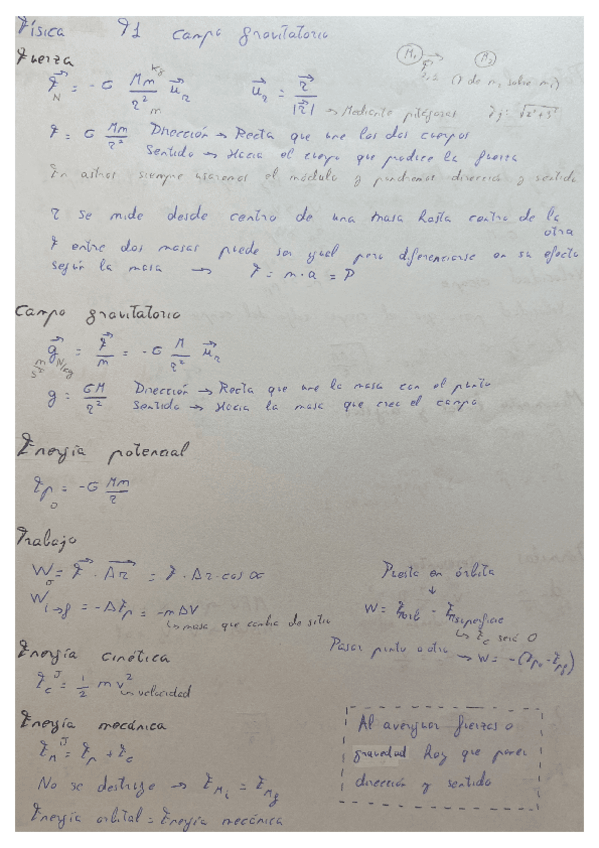 Física T1 Campo gravitatorio
Fuerza
F⃗ = -G Mm/r² u⃗r
N kg m
u⃗r = r⃗/|r⃗| → Mediante pitágoras
M1 M2
F = G Mm/r² Dirección → Recta que une los dos cuerpos
Sentido → Hacia el cuerpo que produce la fuerza
En astros siempre usaremos el módulo y pondremos dirección y sentido
r se mide desde centro de una masa hasta centro de la otra
F entre dos masas puede ser igual pero diferenciarse en su efecto
según la masa → F = m·a = P
Campo gravitatorio
g⃗ = F⃗/m = -G M/r² u⃗r
N/kg
g = GM/r² Dirección → Recta que une la masa con el punto
Sentido → Hacia la masa que crea el campo
Energía potencial
Ep = -G Mm/r
Trabajo
W = F⃗ · Δr⃗ = F · Δr · cos α
Wi→f = -ΔEp = -mΔV
↳ masa que cambia de sitio
Puesta en órbita
↓
W = Eorb - Esuperficie
↳ Ec será 0
Pasar punto a otro → W = -(Ep - Ep)
Energía cinética
Ec J = 1/2 m v² → velocidad
Energía mecánica
Em J = Ep + Ec
No se destruye → EMi = EMf
Energía orbital = Energía mecánica
Al averiguar fuerzas o
gravedad hay que poner
dirección y sentido